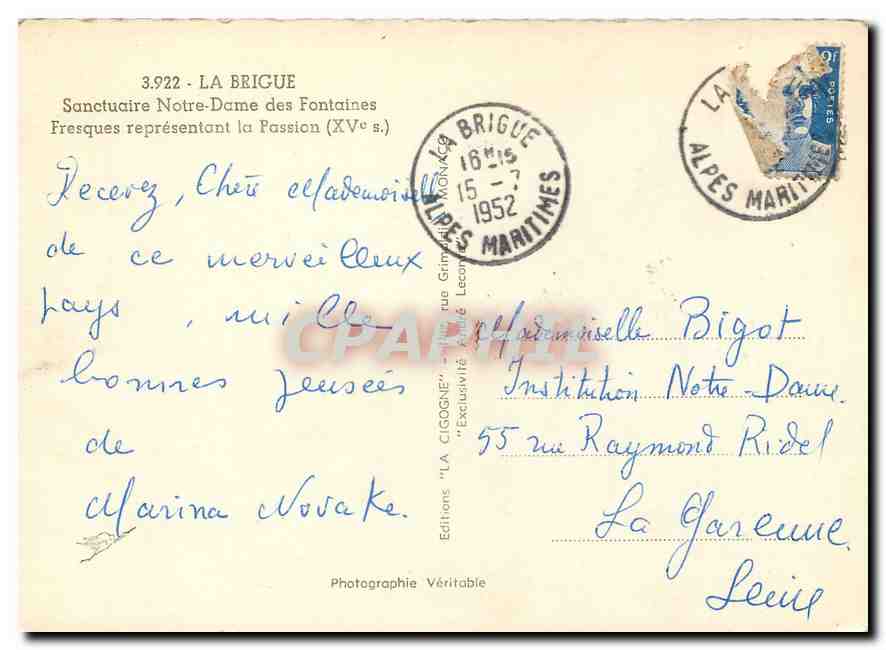 3.922 - LA BRIGUE
Sanctuaire Notre-Dame des Fontaines
Fresques représentant la Passion (XVe s.)
Recevez, Chère Mademoiselle
de ce merveilleux
pays, mille
bonnes pensées
de
Marina Novake.
LA BRIGUE
16H15
15 - 7
1952
ALPES MARITIMES
LA
ALPES MARITIME
POSTES
Editions "LA CIGOGNE" - rue Grimaldi MONACO
"Exclusivité André Lecomte
Mademoiselle Bigot
Institution Notre-Dame.
55 rue Raymond Ridel
La Garenne.
Seine
Photographie Véritable
CPARPHIL